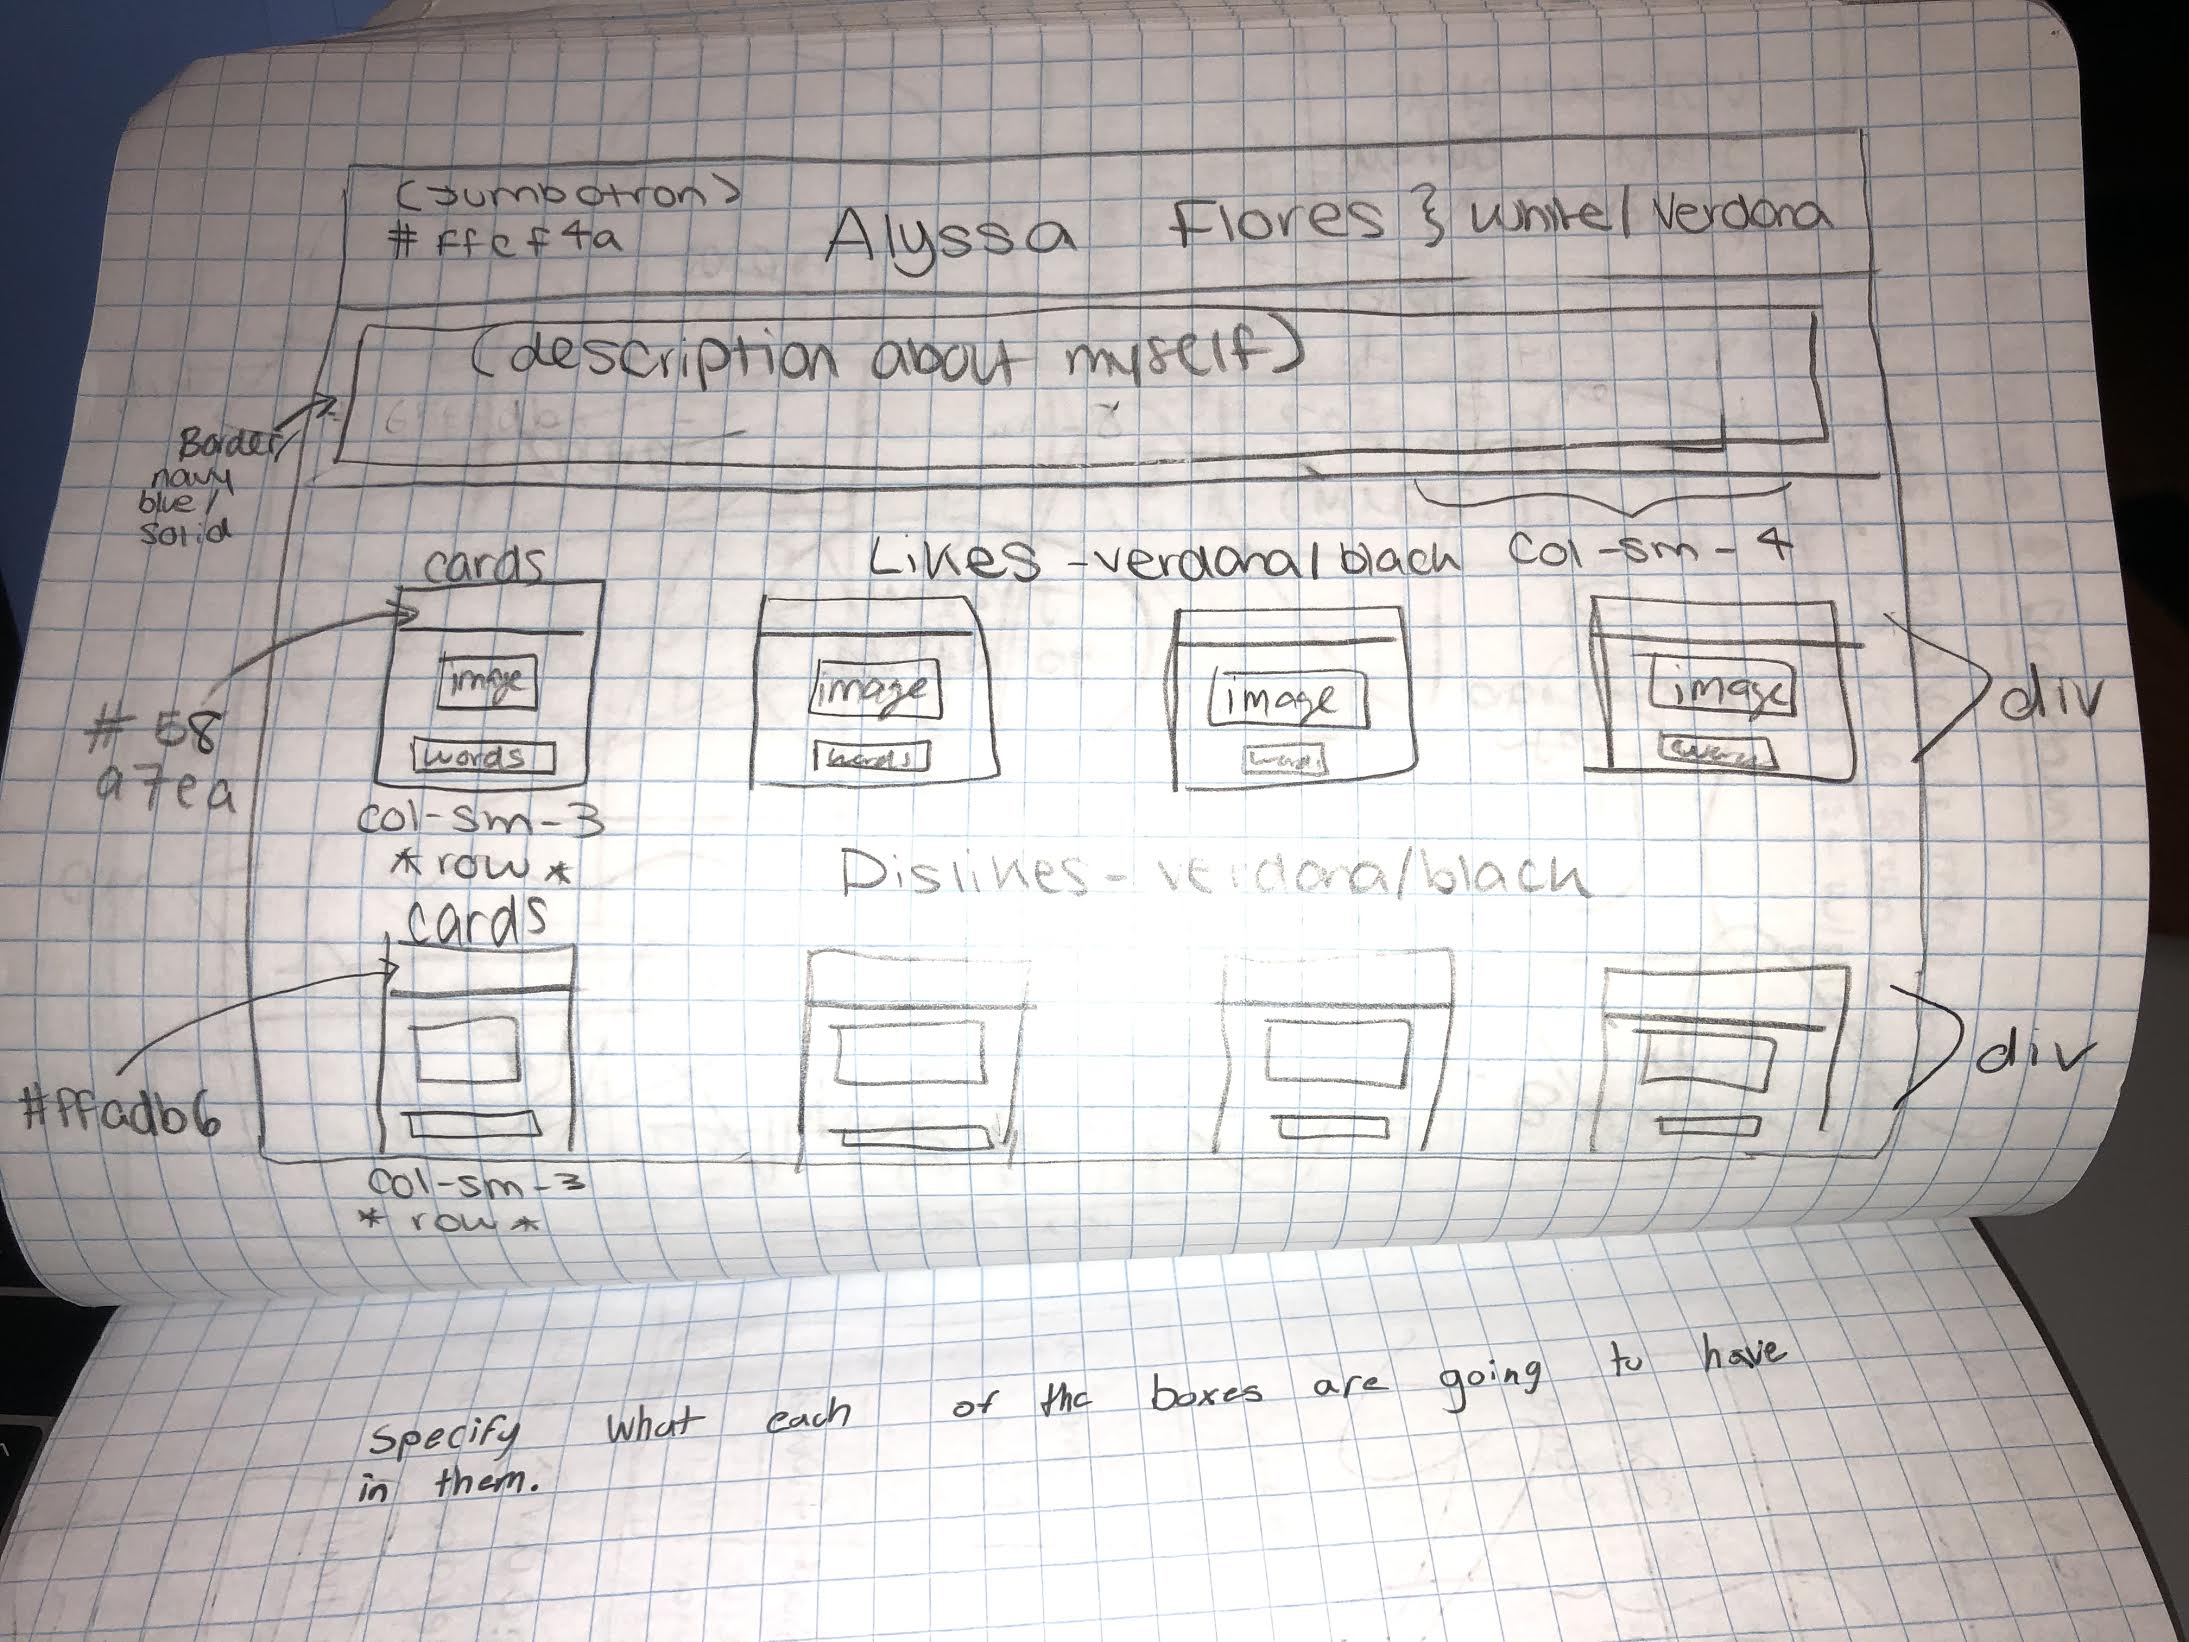 (Jumbotron)
#ffcf4a
Alyssa Flores } white/verdana
(description about myself)
Border/
navy
blue/
solid
cards
Likes - verdana/black
col-sm-4
image
image
image
image
words
words
words
div
#58
a7ea
col-sm-3
*row*
Dislikes - verdana/black
cards
div
#ffadb6
col-sm-3
*row*
Specify what each of the boxes are going to have
in them.